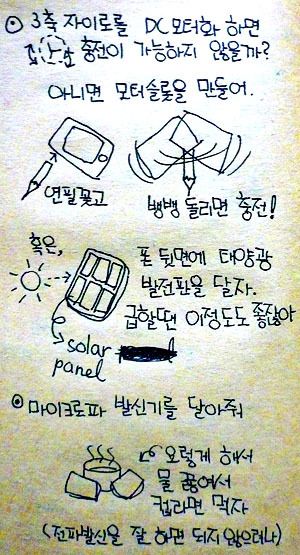 ⊙ 3축 자이로를 DC모터화 하면
충전이 가능하지 않을까?
아니면 모터슬롯을 만들어.
연필꽂고
뱅뱅 돌리면 충전!
혹은,
폰 뒷면에 태양광
발전판을 달자.
급할땐 이정도도 좋잖아
solar
panel
⊙ 마이크로파 발신기를 달아줘
요렇게 해서
물 끓여서
컵라면 먹자
(전파발신을 잘 하면 되지 않으려나)